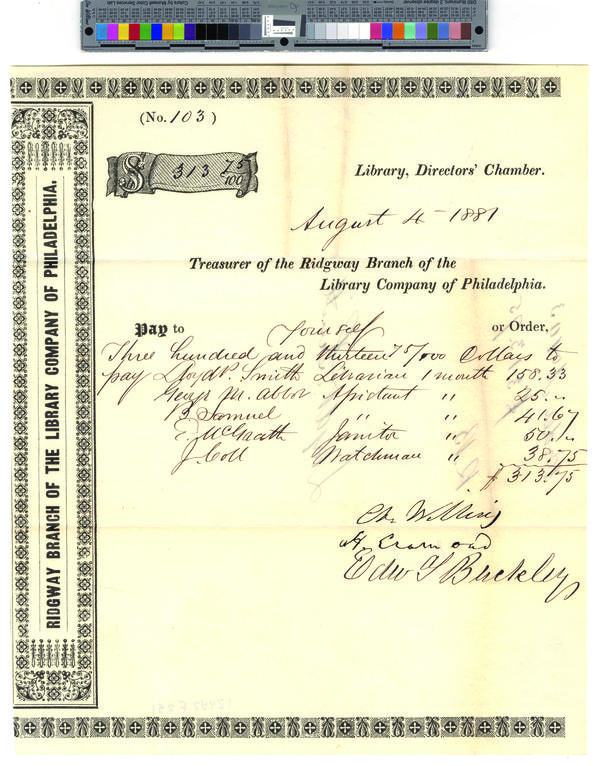 RIDGWAY BRANCH OF THE LIBRARY COMPANY OF PHILADELPHIA.
(No. 103)
$ 313 75/100
Library, Directors' Chamber.
August 4 1881
Treasurer of the Ridgway Branch of the
Library Company of Philadelphia.
Pay to Yourself or Order,
Three hundred and thirteen 75/100 Dollars to
pay Lloyd P. Smith Librarian 1 month 158.33
George M. Abbot Assistant " 25.
B. Samuel " " 41.67
E. McGrath Janitor " 50.
J. Coll Watchman " 38.75
$ 313.75
Edw S Buckley